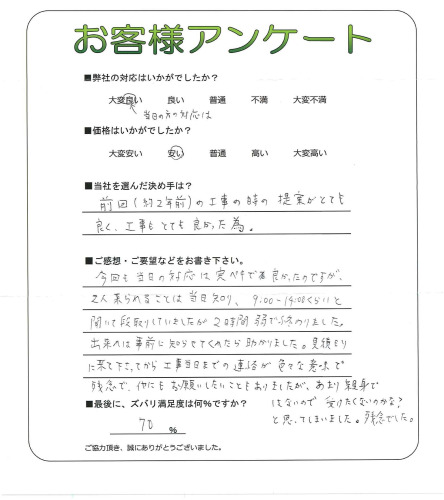 お客様アンケート
■弊社の対応はいかがでしたか?
大変良い 良い 普通 不満 大変不満
当日の方の対応は
■価格はいかがでしたか?
大変安い 安い 普通 高い 大変高い
■当社を選んだ決め手は?
前回(約2年前)の工事の時の提案がとても
良く、工事もとても良かった為。
■ご感想・ご要望などをお書き下さい。
今回も当日の対応は良かったのですが、
2人来られることは当日知り、9:00~14:00くらいと
聞いて段取りしていましたが2時間弱で終わりました。
出来れば事前に知らせてくれたら助かりました。見積もり
に来て下さってから工事当日までの連絡が色々な意味で
残念で、他にもお願いしたいこともありましたが、あまり
はないので受けたくないのかな?
と思ってしまいました。残念でした。
■最後に、ズバリ満足度は何%ですか?
70 %
ご協力頂き、誠にありがとうございました。